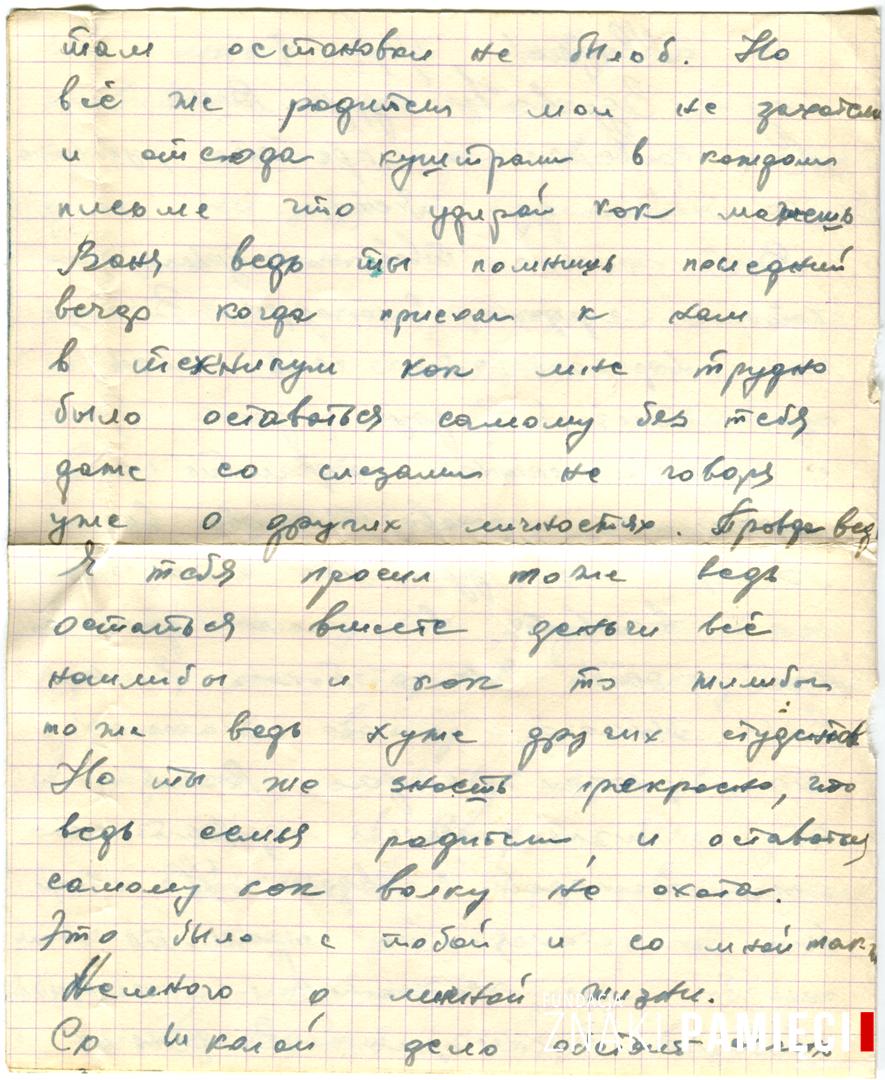 там остановки не было б. Но
всё же родители мои не захотели
и отсюда в каждом
письме что удирай как можешь
Ваня ведь ты помнишь последний
вечер когда приехал к нам
в техникум как мне трудно
было оставаться самому без тебя
даже со слезами не говоря
уже о других личностях. Правда ведь
Я тебя просил тоже ведь
остаться вместе деньги всё
нашлибы и как то жилибы
тоже ведь хуже других студентов
Но ты же знаешь прекрасно, что
ведь семья родители, и оставаться
самому как волку не охота.
Это было с тобой и со мной так-
Немного о личной жизни.
Со школой дело обстоит
FUNDACJA
ZNAKI PAMIĘCI